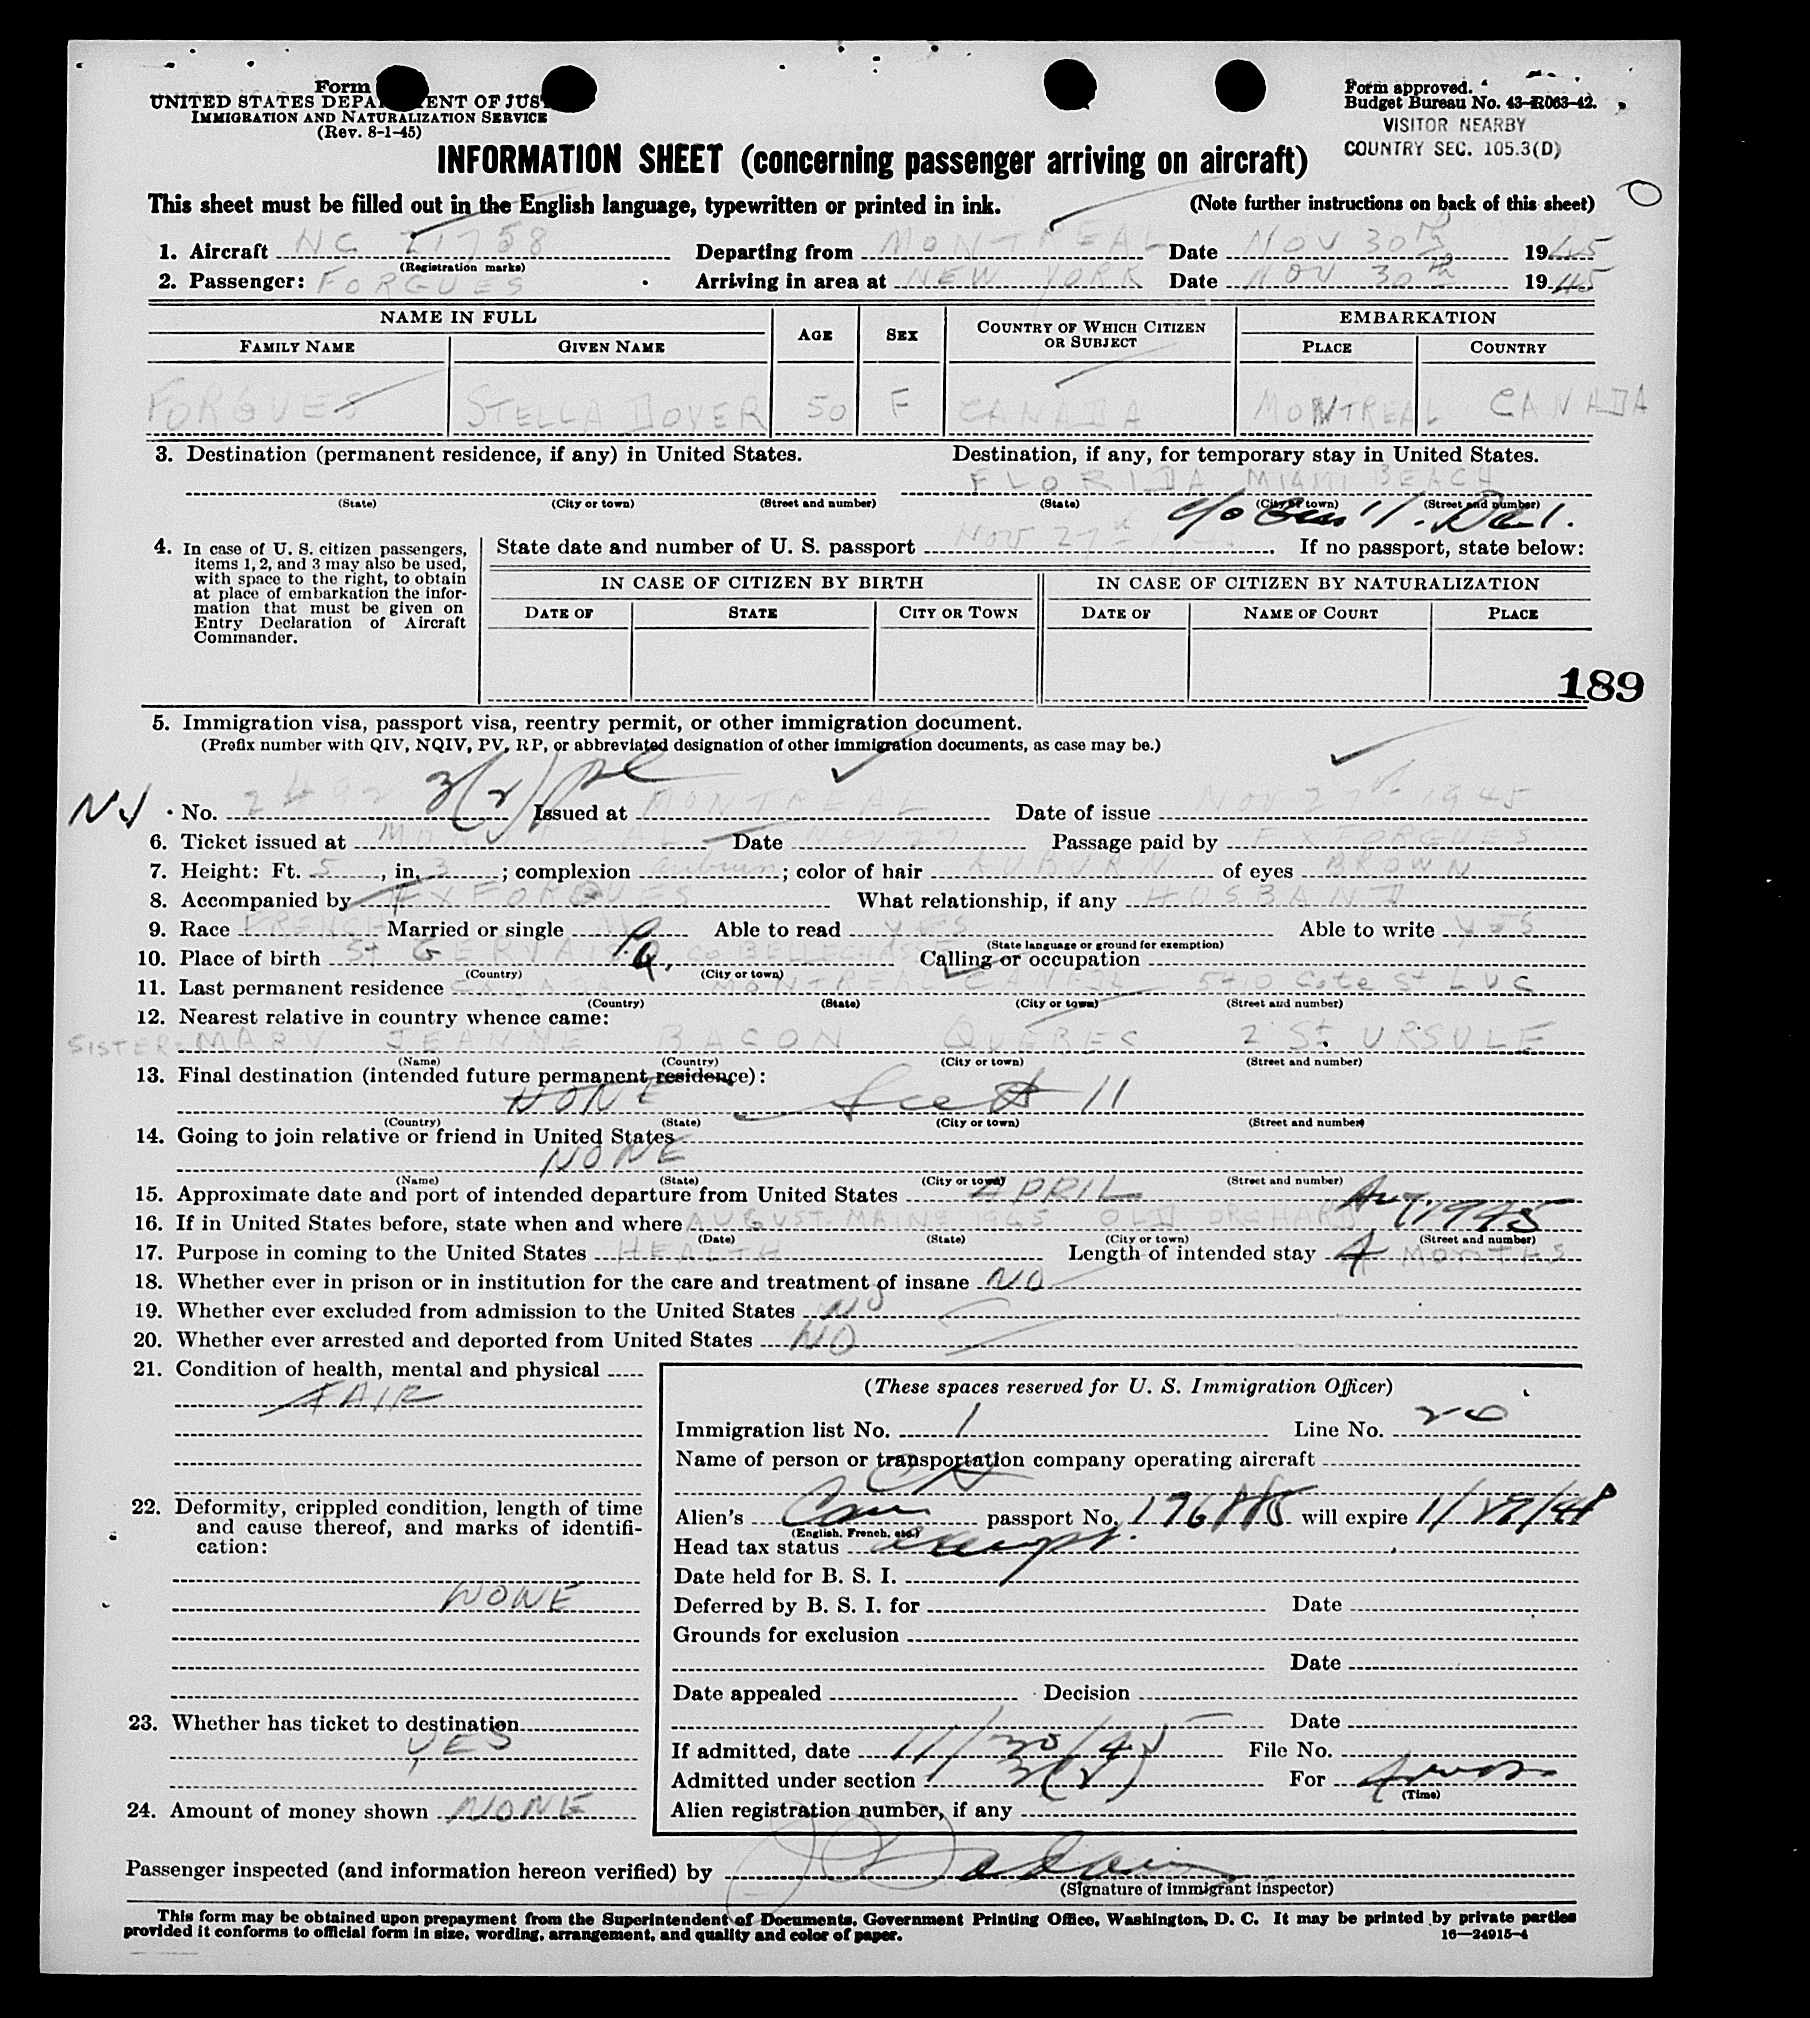 Form
UNITED STATES DEPA ENT OF JUS
IMMIGRATION AND NATURALIZATION SERVICE
(Rev. 8-1-45)
Form approved.
Budget Bureau No. 43-R063-42.
VISITOR NEARBY
COUNTRY SEC. 105.3(D)
INFORMATION SHEET (concerning passenger arriving on aircraft)
This sheet must be filled out in the English language, typewritten or printed in ink. (Note further instructions on back of this sheet)
1. Aircraft NC 21758 Departing from MONTREAL Date NOV 30th 1945
(Registration marks)
2. Passenger: FORGUES Arriving in area at NEW YORK Date NOV 30th 1945
NAME IN FULL AGE SEX COUNTRY OF WHICH CITIZEN OR SUBJECT EMBARKATION
FAMILY NAME GIVEN NAME PLACE COUNTRY
FORGUES STELLA DOYER 50 F CANADA MONTREAL CANADA
3. Destination (permanent residence, if any) in United States. Destination, if any, for temporary stay in United States.
FLORIDA MIAMI BEACH
(State) (City or town) (Street and number) (State) (City or town) (Street and number)
c/o Gen'l. Del.
4. In case of U. S. citizen passengers, items 1, 2, and 3 may also be used, with space to the right, to obtain at place of embarkation the information that must be given on Entry Declaration of Aircraft Commander.
State date and number of U. S. passport NOV 27th If no passport, state below:
IN CASE OF CITIZEN BY BIRTH IN CASE OF CITIZEN BY NATURALIZATION
DATE OF STATE CITY OR TOWN DATE OF NAME OF COURT PLACE
189
5. Immigration visa, passport visa, reentry permit, or other immigration document.
(Prefix number with QIV, NQIV, PV, RP, or abbreviated designation of other immigration documents, as case may be.)
3(2)
No. 2492 Issued at MONTREAL Date of issue NOV 27th 1945
6. Ticket issued at MONTREAL Date NOV 27 Passage paid by F X FORGUES
7. Height: Ft. 5, in. 3; complexion auburn; color of hair AUBURN of eyes BROWN
8. Accompanied by F X FORGUES What relationship, if any HUSBAND
9. Race FRENCH Married or single M Able to read YES Able to write YES
(State language or ground for exemption)
10. Place of birth ST GERVAIS P.Q. CO BELLECHASSE Calling or occupation
(Country) (City or town)
11. Last permanent residence CANADA MONTREAL 5410 Cote St LUC
(Country) (State) (City or town) (Street and number)
12. Nearest relative in country whence came:
SISTER- MARY JEANNE BACON QUEBEC 2 St. URSULE
(Name) (Country) (City or town) (Street and number)
13. Final destination (intended future permanent residence):
NONE 11
(Country) (State) (City or town) (Street and number)
14. Going to join relative or friend in United States
NONE
(Name) (State) (City or town) (Street and number)
15. Approximate date and port of intended departure from United States APRIL
16. If in United States before, state when and where AUGUST. MAINE 1945 OLD ORCHARD Aug. 1945
(Date) (State) (City or town) (Street and number)
17. Purpose in coming to the United States HEALTH Length of intended stay 4 MONTHS
18. Whether ever in prison or in institution for the care and treatment of insane NO
19. Whether ever excluded from admission to the United States NO
20. Whether ever arrested and deported from United States NO
21. Condition of health, mental and physical
FAIR
22. Deformity, crippled condition, length of time and cause thereof, and marks of identification:
NONE
23. Whether has ticket to destination
YES
24. Amount of money shown NONE
(These spaces reserved for U. S. Immigration Officer)
Immigration list No. 1 Line No. 20
Name of person or transportation company operating aircraft
Alien's Can passport No. will expire 11/27/48
(English, French, etc.)
Head tax status exempt.
Date held for B. S. I.
Deferred by B. S. I. for Date
Grounds for exclusion
Date
Date appealed Decision
Date
If admitted, date 11/30/45 File No.
Admitted under section 3(2) For 4 mos
(Time)
Alien registration number, if any
Passenger inspected (and information hereon verified) by
(Signature of immigrant inspector)
This form may be obtained upon prepayment from the Superintendent of Documents, Government Printing Office, Washington, D. C. It may be printed by private parties
provided it conforms to official form in size, wording, arrangement, and quality and color of paper. 16—24915-4